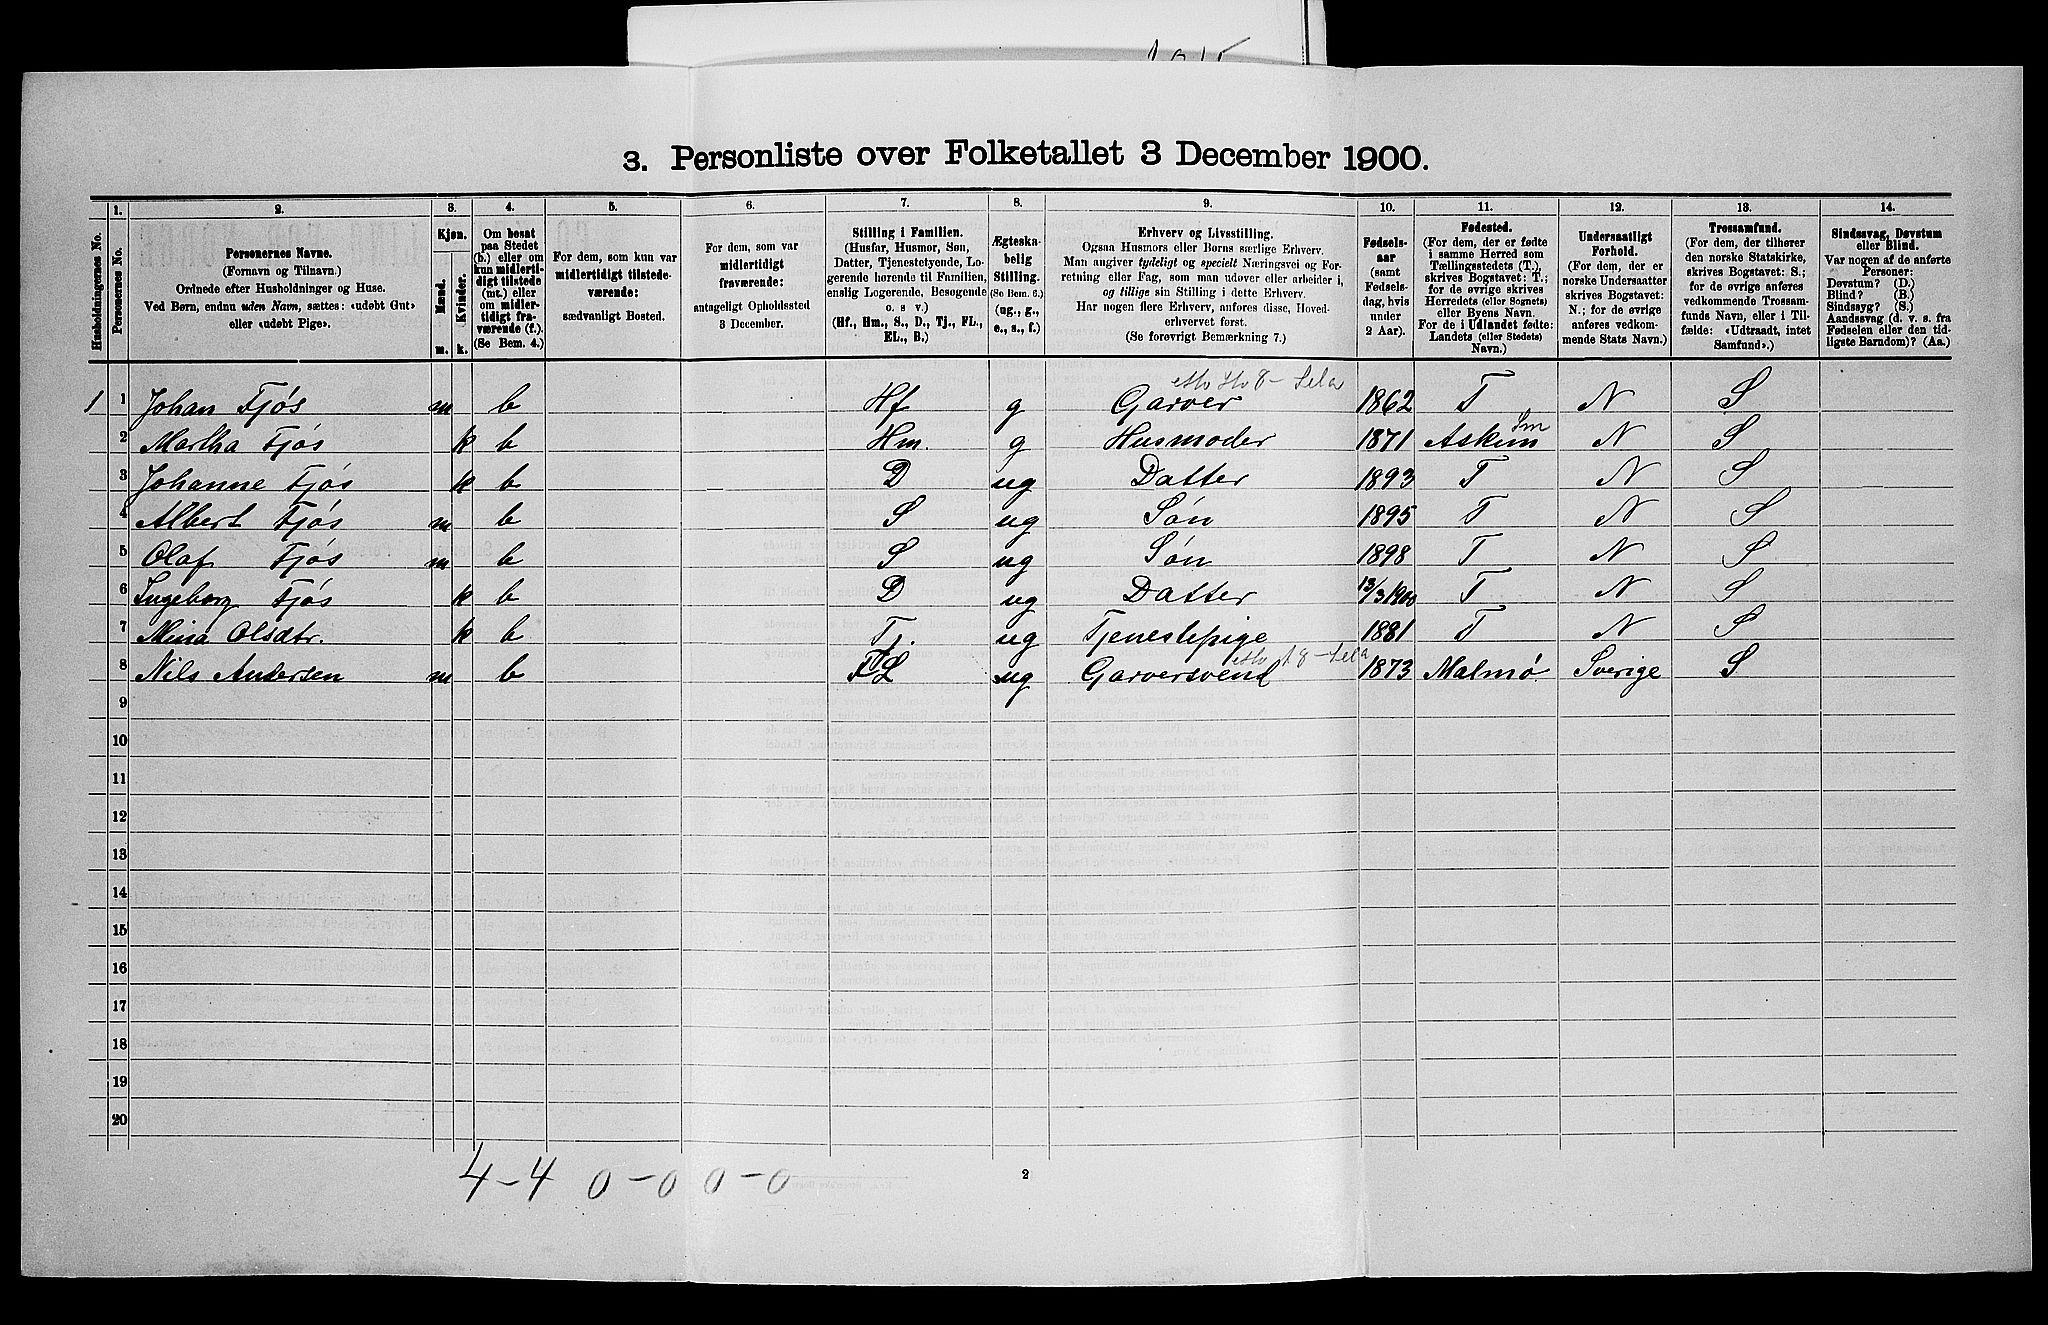 3. Personliste over Folketallet 3 December 1900.
Husholdningernes No.
1. Personernes No.
2. Personernes Navne. (Fornavn og Tilnavn.) Ordnede efter Husholdninger og Huse. Ved Børn, endnu uden Navn, sættes: «udøbt Gut» eller «udøbt Pige».
3. Kjøn. Mænd. m. Kvinder. k.
4. Om bosat paa Stedet (b.) eller om kun midlertidigt tilstede (mt.) eller om midlertidigt fraværende (f.). (Se Bem. 4.)
5. For dem, som kun var midlertidigt tilstedeværende: sædvanligt Bosted.
6. For dem, som var midlertidigt fraværende: antageligt Opholdssted 3 December.
7. Stilling i Familien. (Husfar, Husmor, Søn, Datter, Tjenestetyende, Logerende hørende til Familien, enslig Logerende, Besøgende o. s v.) (Hf., Hm., S., D., Tj., FL., EL., B.)
8. Ægteskabelig Stilling. (Se Bem. 6.) (ug., g., e., s., f.)
9. Erhverv og Livsstilling. Ogsaa Husmors eller Børns særlige Erhverv. Man angiver tydeligt og specielt Næringsvei og Forretning eller Fag, som man udøver eller arbeider i, og tillige sin Stilling i dette Erhverv. Har nogen flere Erhverv, anføres disse, Hovederhvervet først. (Se forøvrigt Bemærkning 7.)
10. Fødselsaar (samt Fødselsdag, hvis under 2 Aar).
11. Fødested. (For dem, der er fødte i samme Herred som Tællingsstedets (T.), skrives Bogstavet: T.; for de øvrige skrives Herredets (eller Sognets) eller Byens Navn. For de i Udlandet fødte: Landets (eller Stedets) Navn.)
12. Undersaatligt Forhold. (For dem, der er norske Undersaatter skrives Bogstavet: N.; for de øvrige anføres vedkommende Stats Navn.)
13. Trossamfund. (For dem, der tilhører den norske Statskirke, skrives Bogstavet: S.; for de øvrige anføres vedkommende Trossamfunds Navn, eller i Tilfælde: «Udtraadt, intet Samfund».)
14. Sindssvag, Døvstum eller Blind. Var nogen af de anførte Personer: Døvstum? (D.) Blind? (B.) Sindssyg? (S.) Aandssvag (d. v. s. fra Fødselen eller den tidligste Barndom)? (Aa.)
1 1 Johan Fjøs m b Hf g Garver 1862 T N S
2 Martha Fjøs k b Hm. g Husmoder 1871 Askim Sm N S
3 Johanne Fjøs k b D ug Datter 1893 T N S
4 Albert Fjøs m b S ug Søn 1895 T N S
5 Olaf Fjøs m b S ug Søn 1898 T N S
6 Ingeborg Fjøs k b D ug Datter 13/3 1900 T N S
7 Mina Olsdtr. k b Tj. ug Tjenestepige 1881 T N S
8 Nils Andersen m b FL ug Garversvend 1873 Malmø Sverige S
9
10
11
12
13
14
15
16
17
18
19
20
4-4 0-0 0-0
2